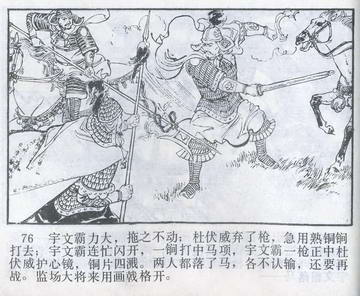 76 宇文霸力大，拖之不动；杜伏威弃了枪，急用熟铜锏
打去；宇文霸连忙闪开，一锏打中马项，宇文霸一枪正中杜
伏威护心镜，铜片四溅。两人都落了马，各不认输，还要再
战。监场大将来用画戟格开。